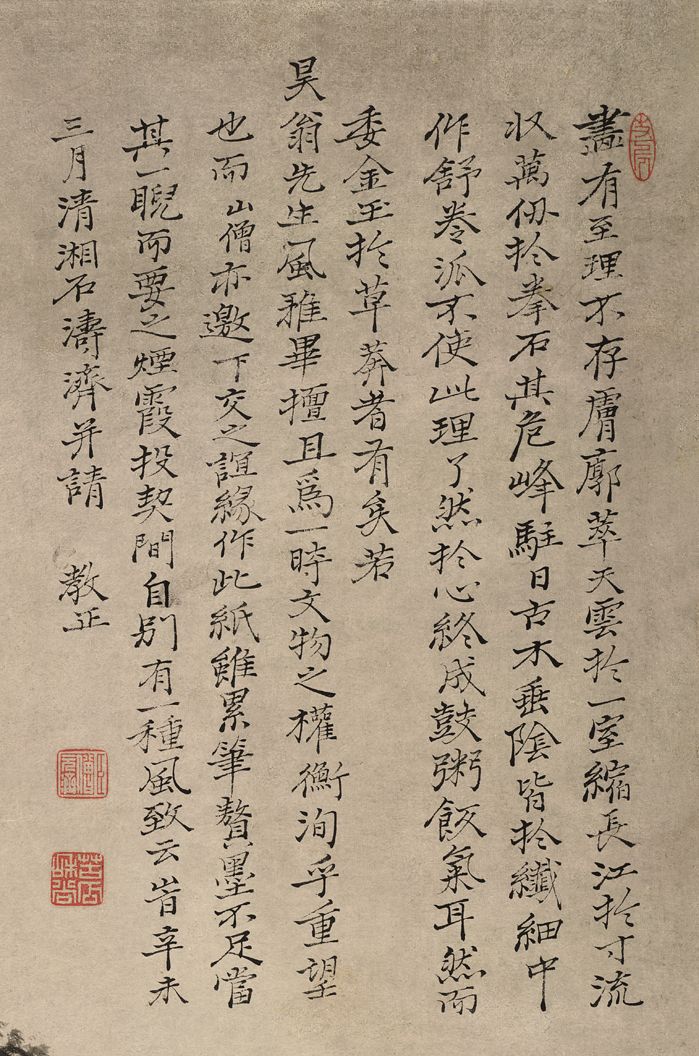 畫有至理不存膚廓萃天雲於一室縮長江於寸流
収萬仞於拳石其危峰駐日古木垂陰皆於纖細中
作舒卷派不使此理了然於心終成鼓粥飯氣耳然而
委金玉於草莽者有矣若
昊翁先生風雅畢擅且爲一時文物之權衡洵乎重望
也而山僧亦邀下交之誼緣作此紙雖累筆贅墨不足當
其一睨而要之煙霞投契間自別有一種風致云旹辛未
三月清湘石濤濟并請 教正